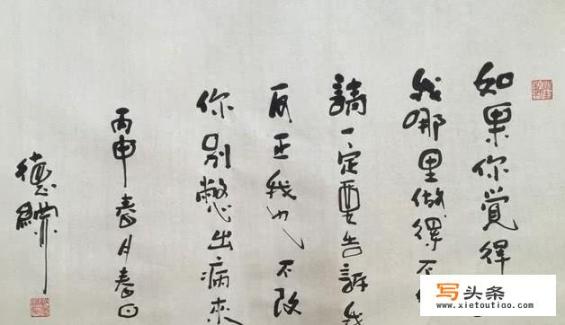 如果你覺得
我哪里做得不
請一定要告訴我
反正我也不改
你别憋出病來
丙申春月春日
德
写头条
www.xietoutiao.com